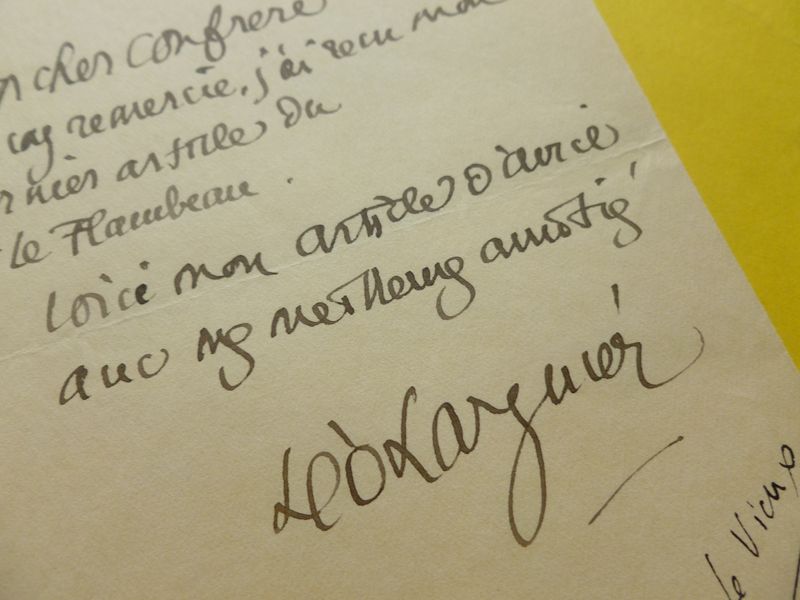 cher confrère
remercie, j'ai reçu mon
rnier article du
le Flambeau.
Voici mon article d'avril
avec mes meilleurs amitiés
Léo Larguier
le Vieux